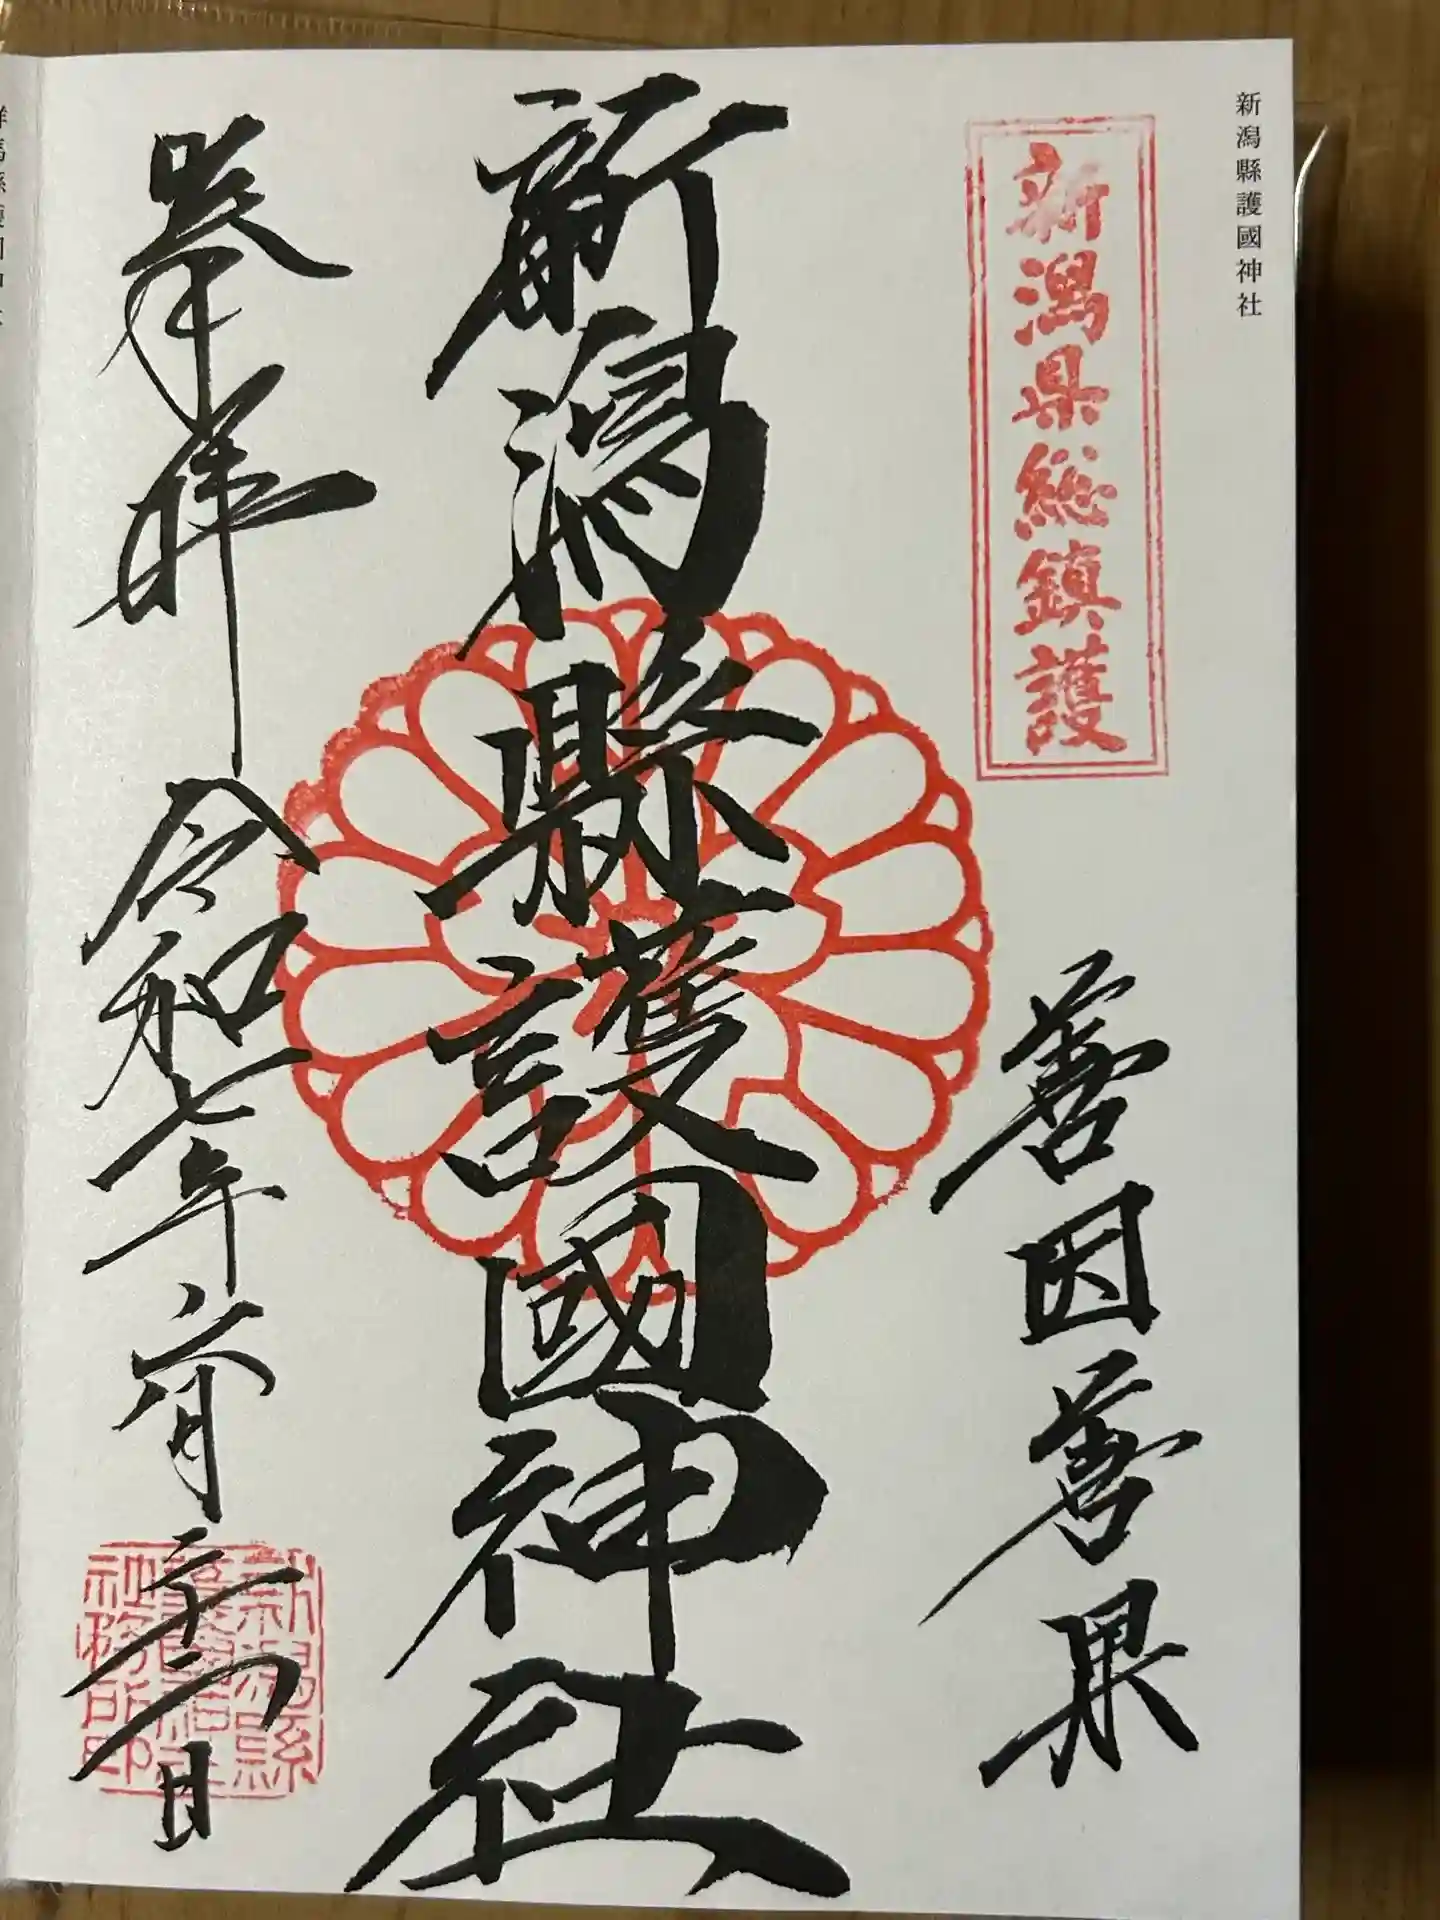 新潟縣護國神社
新潟県総鎮護
善因善果
新潟縣護國神社
奉拝
令和七年六月二十一日
新潟縣
護國神社
社務所印